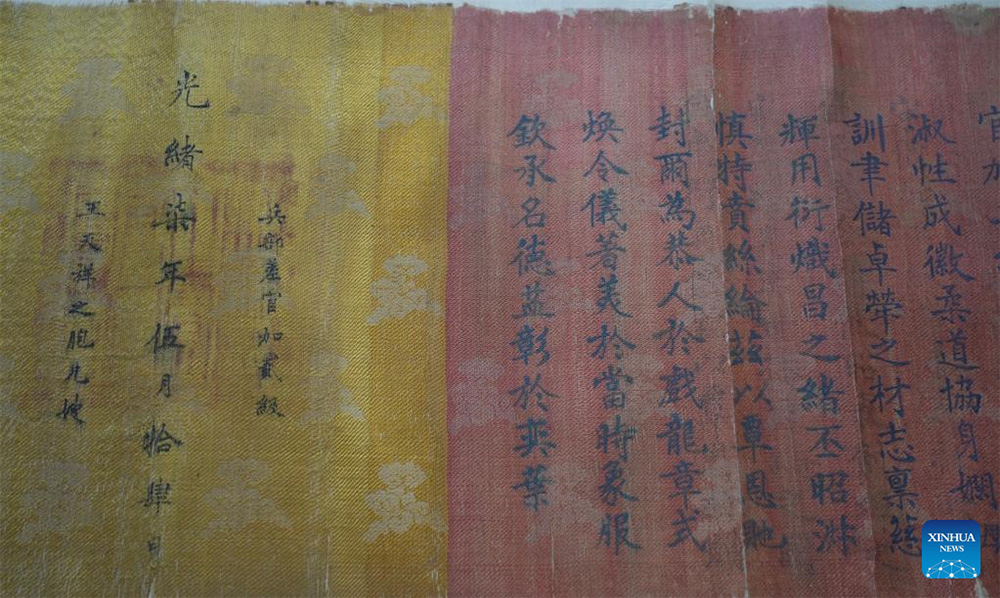 官
淑性成徽柔道協身嫻
訓聿儲卓犖之材志禀慈
輝用衍熾昌之緒丕昭淑
慎特賁絲綸茲以覃恩貤
封爾為恭人於戲龍章式
煥令儀著美於當時象服
欽承名德益彰於奕葉
兵部差官加貳級
光緒柒年伍月拾肆日
王天祥之胞兄嫂
XINHUA
NEWS